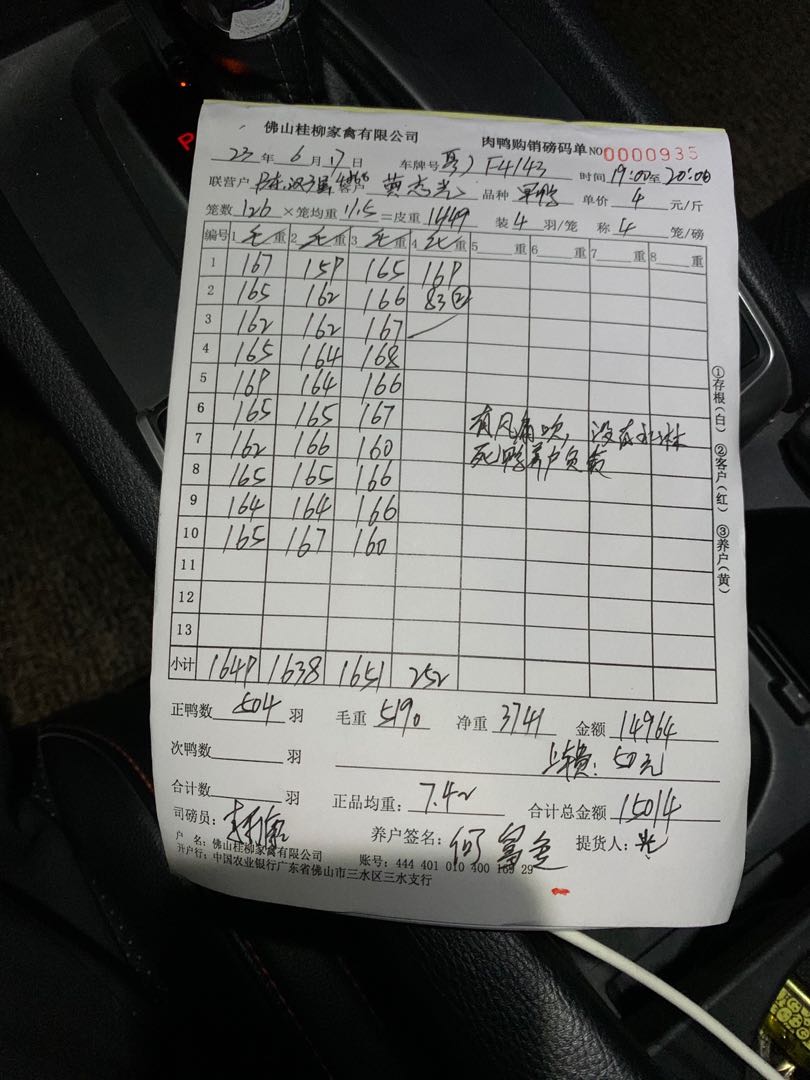 佛山桂柳家禽有限公司 肉鸭购销磅码单 NO 0000935
23 年 6 月 17 日 车牌号 粤J F4143 时间 19:00 至 20:00
联营户 客户 黄志 品种 单价 4 元/斤
笼数 126 ×笼均重 11.5 =皮重 1449 装 4 羽/笼 称 4 笼/磅
编号 1 毛 重 2 毛 重 3 毛 重 4 毛 重 5 重 6 重 7 重 8 重
1 167 159 165 169
2 165 162 166 83②
3 162 162 167
4 165 164 168
5 169 164 166
6 165 165 167
7 162 166 160
8 165 165 166
9 164 164 166
10 165 167 160
11
12
13
有风扇吹，没有水淋
死鸭养户负责
小计 1649 1638 1651 252
正鸭数 504 羽 毛重 5190 净重 3741 金额 14964
次鸭数 羽 上车费：50元
合计数 羽 正品均重：7.42 合计总金额 15014
司磅员： 养户签名：何富 提货人：光
户 名：佛山桂柳家禽有限公司 账号：444 401 010 400 169 29
开户行：中国农业银行广东省佛山市三水区三水支行
①存根（白） ②客户（红） ③养户（黄）
P